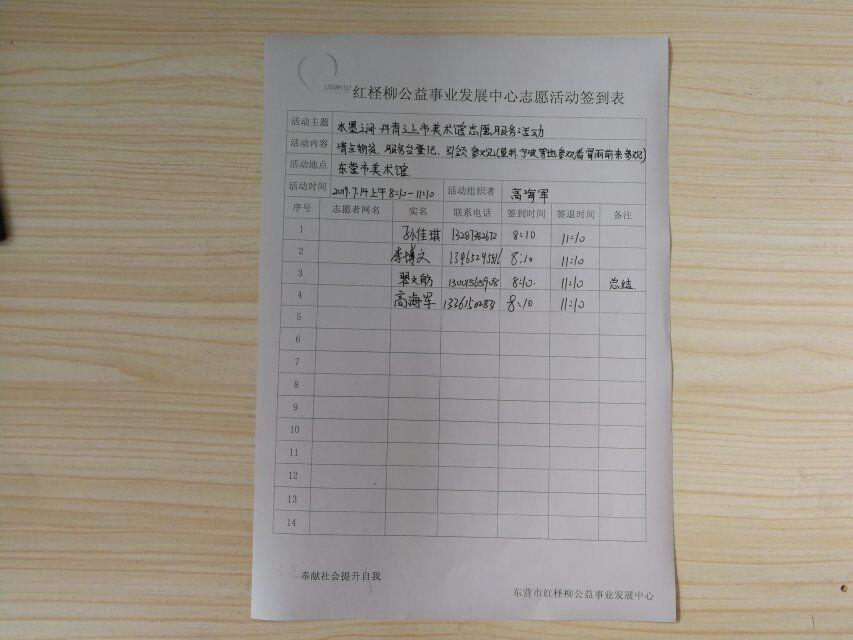 红柽柳公益事业发展中心志愿活动签到表
活动主题 水墨之间·丹青之上市美术馆志愿服务活动
活动内容 清点物资、服务台登记、引领参观
活动地点 东营市美术馆.
活动时间 2019.7.14上午8:10-11:10 活动组织者 高海军
序号 志愿者网名 实名 联系电话 签到时间 签退时间 备注
1 孙佳琪 8:10 11:10
2 李博文 8:10 11:10
3 翟文舫 8:10. 11:10 总结.
4 高海军 8:10 11:10
5
6
7
8
9
10
11
12
13
14
奉献社会提升自我
东营市红柽柳公益事业发展中心